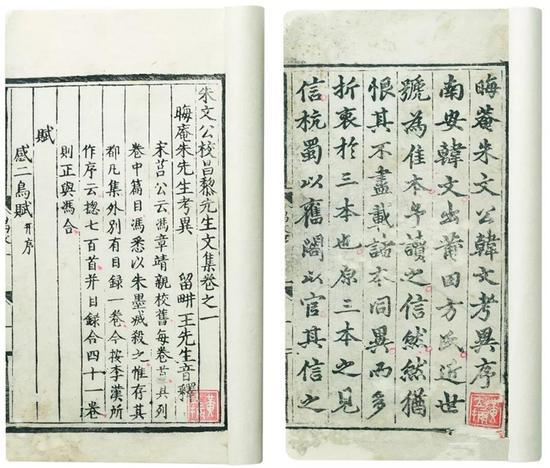 晦菴朱文公韓文考異序
南安韓文出莆田方氏近世
號為佳本予讀之信然然猶
恨其不盡載諸本同異而多
折衷於三本也原三本之見
信杭蜀以舊閣以官其信之
朱文公校昌黎先生文集卷之一
晦庵朱先生考異 留畊王先生音釋
宋莒公云馮章靖親校舊每卷首具列
卷中篇目馮悉以朱墨滅殺之惟存其
都凡集外別有目録一卷今按李漢所
作序云揔七百首并目録合四十一卷
則正與馮合
賦
感二鳥賦 并序